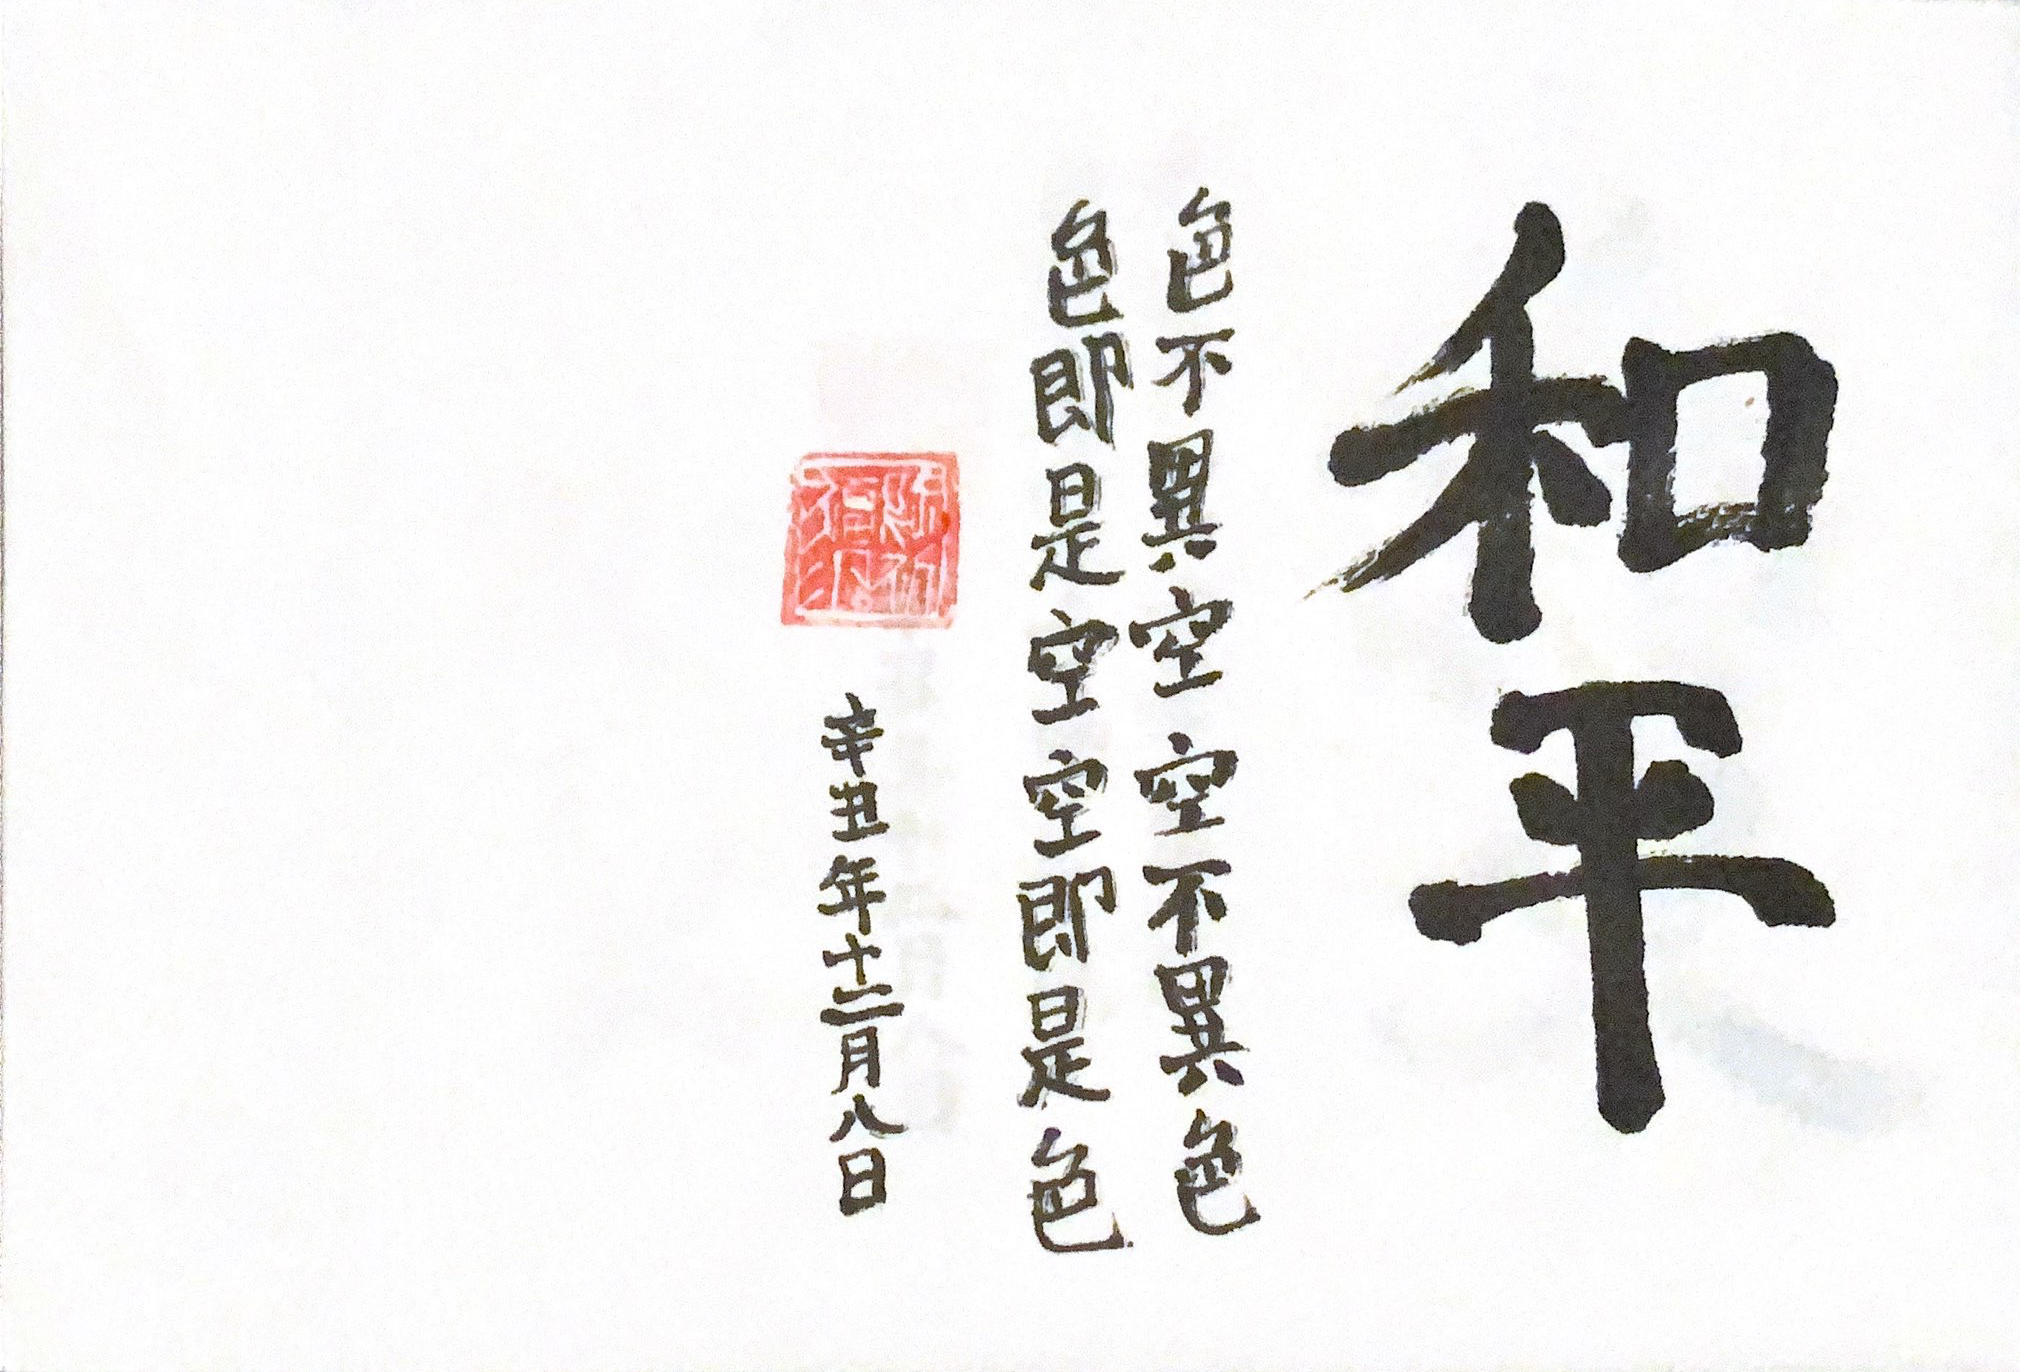 和平
色不異空空不異色
色即是空空即是色
辛丑年十二月八日